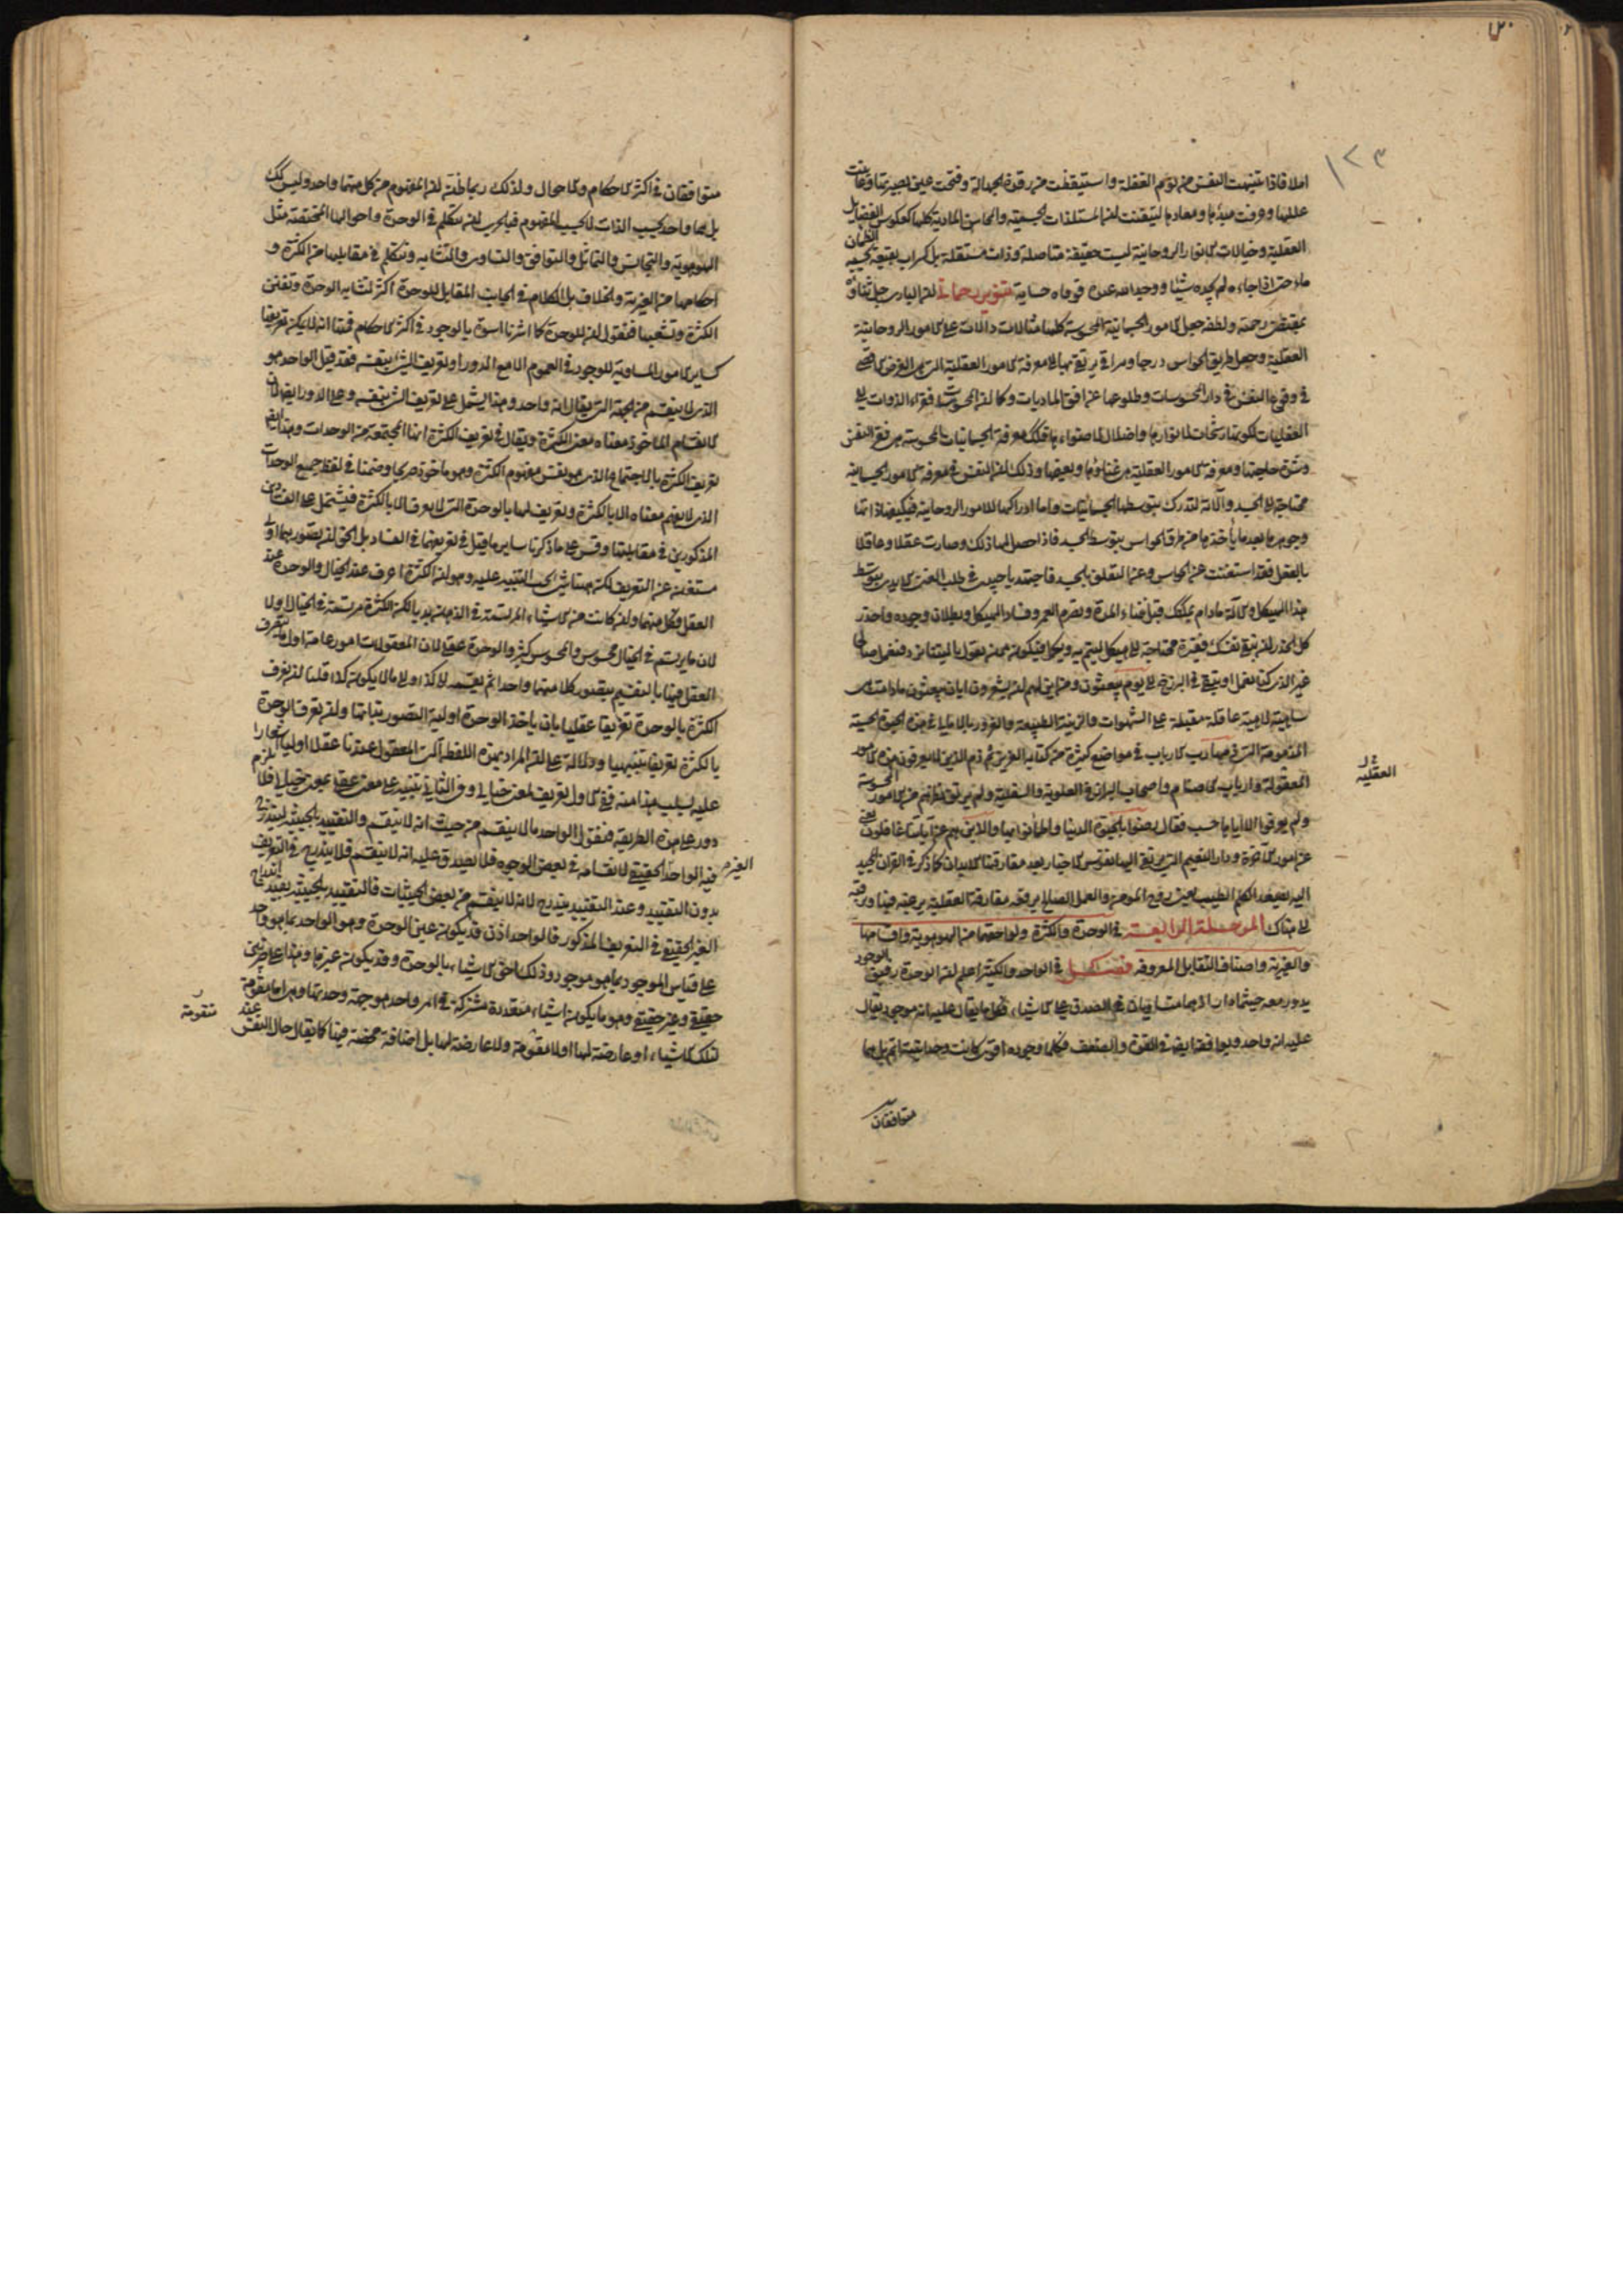 املا فاذا تنبهت النفس من نوم الغفلة واستيقظت من رقدة الجهالة وفتحت عين بصيرتها وعاينت
عالمها وعرفت مبدأها ومعادها لتيقنت ان المستلذات الجسمية والمحاسن المادية كلها كعكوس الفضايل
العقلية وخيالات الانوار الروحانية ليست حقيقة متاصلة وذات مستقلة بل كسراب بقيعة يحسبه الظمان
ماء حتى اذا جاءه لم يجده شيئا ووجد الله عنده فوفاه حسابه تنوير رحماني ان الباري جل ثناؤه
بمقتضى رحمته ولطفه جعل الامور الجسمانية المحسوسة كلها مثالات دالات على الامور الروحانية
العقلية وجعل طريق الحواس درجا ومراقي يرتقي بها الى معرفة الامور العقلية التي هي الغرض الاقصى
في وقوع النفس في دار المحسوسات وطلوعها عن افق الماديات وكما ان المحسوسات فقراء الذوات الى
العقليات لكونها رشحات لانوارها واضلال لاضوائها فكذلك معرفة الجسمانيات المحسوسة هي فقر النفس
وشدة حاجتها ومعرفة الامور العقلية هي غناؤها ونعيمها وذلك ان النفس في معرفة الامور الجسمانية
محتاجة الى الجسد وآلاته لتدرك بتوسطها الجسمانيات واما ادراكها للامور الروحانية فيكفيها ذاتها
وجوهرها بعد ما يأخذها من طرق الحواس بتوسط الجسد فاذا حصل لها ذلك وصارت عقلا وعاقلا
بالفعل فقد استغنت عن الحواس وعن التعلق بالجسد فاجتهد يا حبيبي في طلب الغنى الابدي بتوسط
هذا الهيكل والآلة مادام يمكنك قبل فناء المدة وتصرم العمر وفساد الهيكل وبطلان وجوده واحذر
كل الحذر ان تبقى نفسك فقيرة محتاجة الى هيكل ليتم به ويكمل فيكون ممن يقول يا ليتنا نرد فنعمل صالحا
غير الذي كنا نعمل او يبقى في البرزخ الى يوم يبعثون ومن اين لهم ان يشعرون ايان يبعثون مادامت
ساهية لاهية غافلة مقبلة على الشهوات والزينة الطبيعية والغرور بالاماني في هذه الحيوة الحسية
المذمومة التي ذمها رب الارباب في مواضع كثيرة من كتابه العزيز ثم ذم الذين لا يعرفون هذه الامور
المعقولة وارباب الاصنام واصحاب البرازخ العلوية والسفلية ولم يرتق نظرهم من الامور المحسوسة
ولم يعرفوا الا اياها حسب فقال رضوا بالحيوة الدنيا واطمأنوا بها والذين هم عن آياتنا غافلون يعني
عن امور الآخرة ودار النعيم التي يرتقي اليها نفوس الاخيار بعد مفارقتها الابدان كما ذكر في القرآن المجيد
اليه يصعد الكلم الطيب يعني روح المؤمن والعمل الصالح يرفعه مفارقة العقلية يرغبه فيها ويرقيه
الى هناك المرحلة الرابعة في الوحدة والكثرة ولواحقهما من الهوهوية واقسامها
والغيرية واصناف التقابل المعروفه فصل في الواحد والكثير اعلم ان الوحدة رفيق الوجود
يدور معه حيثما دار اذ هما متساويان في الصدق على الاشياء فكل ما يقال عليه انه موجود يقال
عليه انه واحد ويوافقه ايضا في القوة والضعف فكلما وجوده اقوى كانت وحدانيته اتم بل هما
متوافقان
العقلية
١٢٣
متوافقان في اكثر الاحكام والاحوال ولذلك ربما ظن ان المفهوم من كل منهما واحد وليس كذلك
بل هما واحد بحسب الذات لا بحسب المفهوم فبالحري ان نتكلم في الوحدة واحوالها المختصة مثل
الهوهوية والتجانس والتماثل والتوافق والتساوي والتشابه ونتكلم في مقابلها من الكثرة و
احكامها من الغيرية والخلاف بل الكلام في الجانب المقابل للوحدة اكثر لتشابه الوحدة وتفنن
الكثرة وتشعبها فنقول ان للوحدة كما اشرنا اسوة بالوجود في اكثر الاحكام فمنها انه لا يمكن تعريفها
كساير الامور المساوية للوجود في العموم الا مع الدور او تعريف الشئ بنفسه فقد قيل الواحد هو
الذي لا ينقسم من الجهة التي يقال انه واحد وهذا يشتمل على تعريف الشئ بنفسه وعلى الدور ايضا لان
الانقسام الماخوذ معناه معنى الكثرة ويقال في تعريف الكثرة انها المجتمعة من الوحدات وهذا ايضا
تعريف الكثرة بالاجتماع الذي هو نفس مفهوم الكثرة وهو ماخوذ صريحا وضمنا في لفظ جميع الوحدات
الذي لا يفهم معناه الا بالكثرة وتعريف لها بالوحدة التي لا يعرف الا بالكثرة فيشتمل على الفسادين
المذكورين في مقابلتها وقس على ما ذكرنا ساير ما قيل في تعريفهما في الفساد بل الحق ان تصورهما اولي
مستغن عن التعريف لكن هيهنا شئ يجب التنبيه عليه وهو ان الكثرة اعرف عند الخيال والوحدة عند
العقل فكل منهما وان كانت من الاشياء المرتسمة في الذهن بديا لكن الكثرة مرتسمة في الخيال اولا
لان ما يرتسم في الخيال محسوس والمحسوس كثير والوحدة عقلي لان المعقولات امور عامة اول ما يتعرف
العقل فيها بالتقسيم يتصور كلا منها واحدا ثم يقسمه الى كذا والى ما لا يكون كذا قلنا ان نعرف
الكثرة بالوحدة تعريفا عقليا بان ياخذ الوحدة اولية التصور بذاتها وان نعرف الوحدة
بالكثرة تعريفا تنبيهيا ودلالة على ان المراد بهذه اللفظة الشئ المعقول عندنا عقلا اوليا اشعارا
عليه بسلب هذا منه ففي الاول تعريف لمعنى خيالي وفي الثاني تنبيه على معنى عقلي بمعنى خيالي فلا يلزم
دور على هذه الطريقة فنقول الواحد ما لا ينقسم من حيث انه لا ينقسم والتقييد بالحيثية ليندرج
فيه الواحد الغير الحقيقي لانقسامه في بعض الوجوه فلا يصدق عليه انه لا ينقسم فلا يندرج في التعريف
بدون التقييد وعند التقييد يندرج لانه لا ينقسم من بعض الحيثيات فالتقييد بالحيثية يفيد اندراج
الغير الحقيقي في التعريف المذكور فالواحد اذن قد يكون عين الوحدة وهو الواحد بما هو واحد
على قياس الموجود بما هو موجود وذلك احق الاشياء بالوحدة وقد يكون غيرها وهذا على ضربين
حقيقي وغير حقيقي وهو ما يكون اشياء متعددة مشتركة في امر واحد هو جهة وحدتها وهي اما مقومة
لتلك الاشياء او عارضة لها او لا مقومة ولا عارضة لها بل اضافة محضة فيها كما يقال حال النفس عند
الغير
متقومة